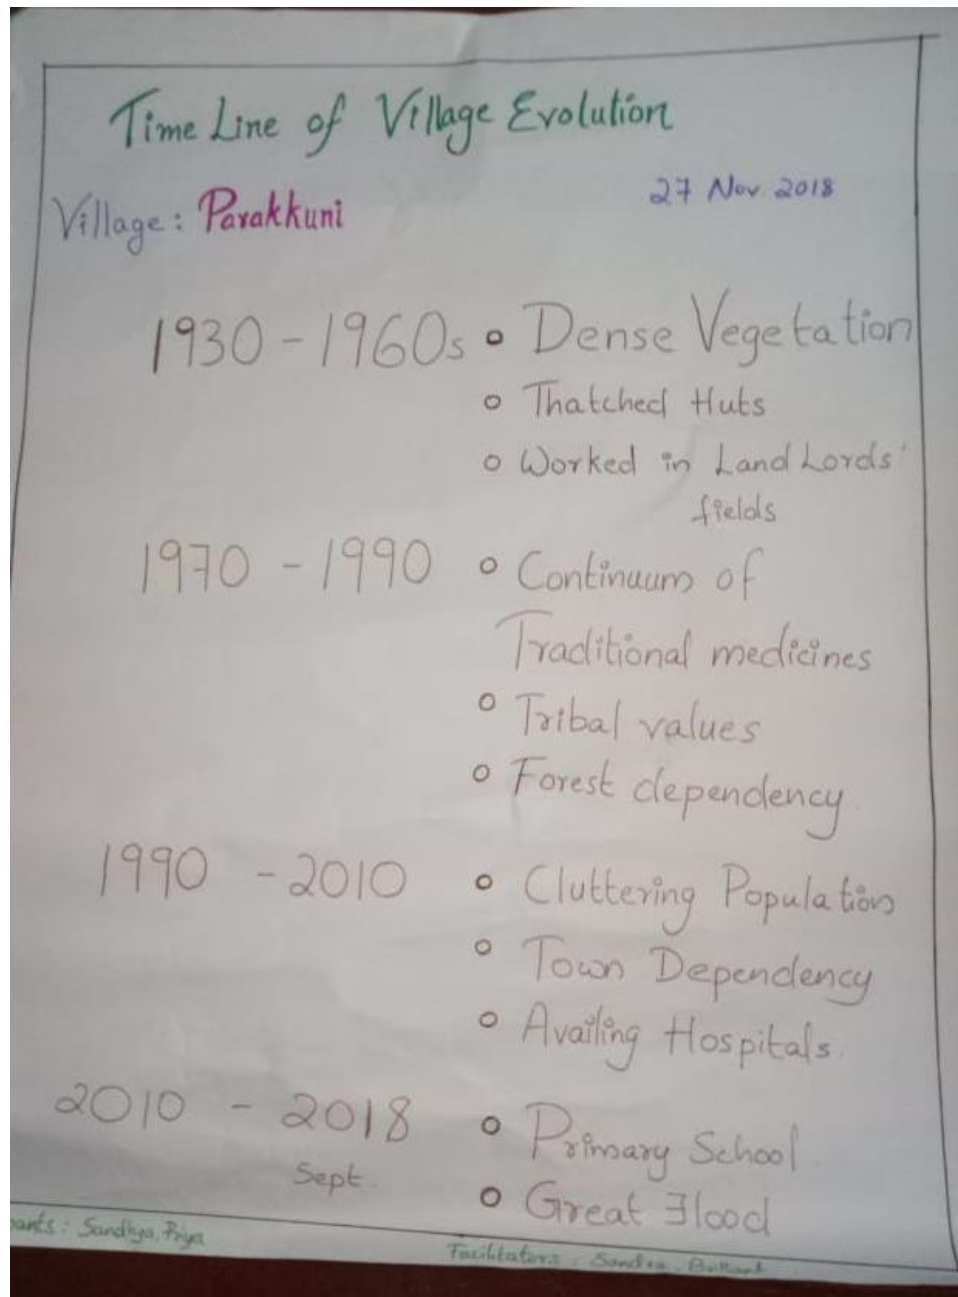 Time Line of Village Evolution
27 Nov 2018
Village: Parakkuni
1930 - 1960s • Dense Vegetation
• Thatched Huts
• Worked in Land Lords'
fields
1970 - 1990 • Continuum of
Traditional medicines
• Tribal values
• Forest dependency.
1990 - 2010 • Cluttering Population
• Town Dependency
• Availing Hospitals.
2010 - 2018 • Primary School
Sept.
• Great Flood
pants: Sandhya, Priya
Facilitators: Sandra,